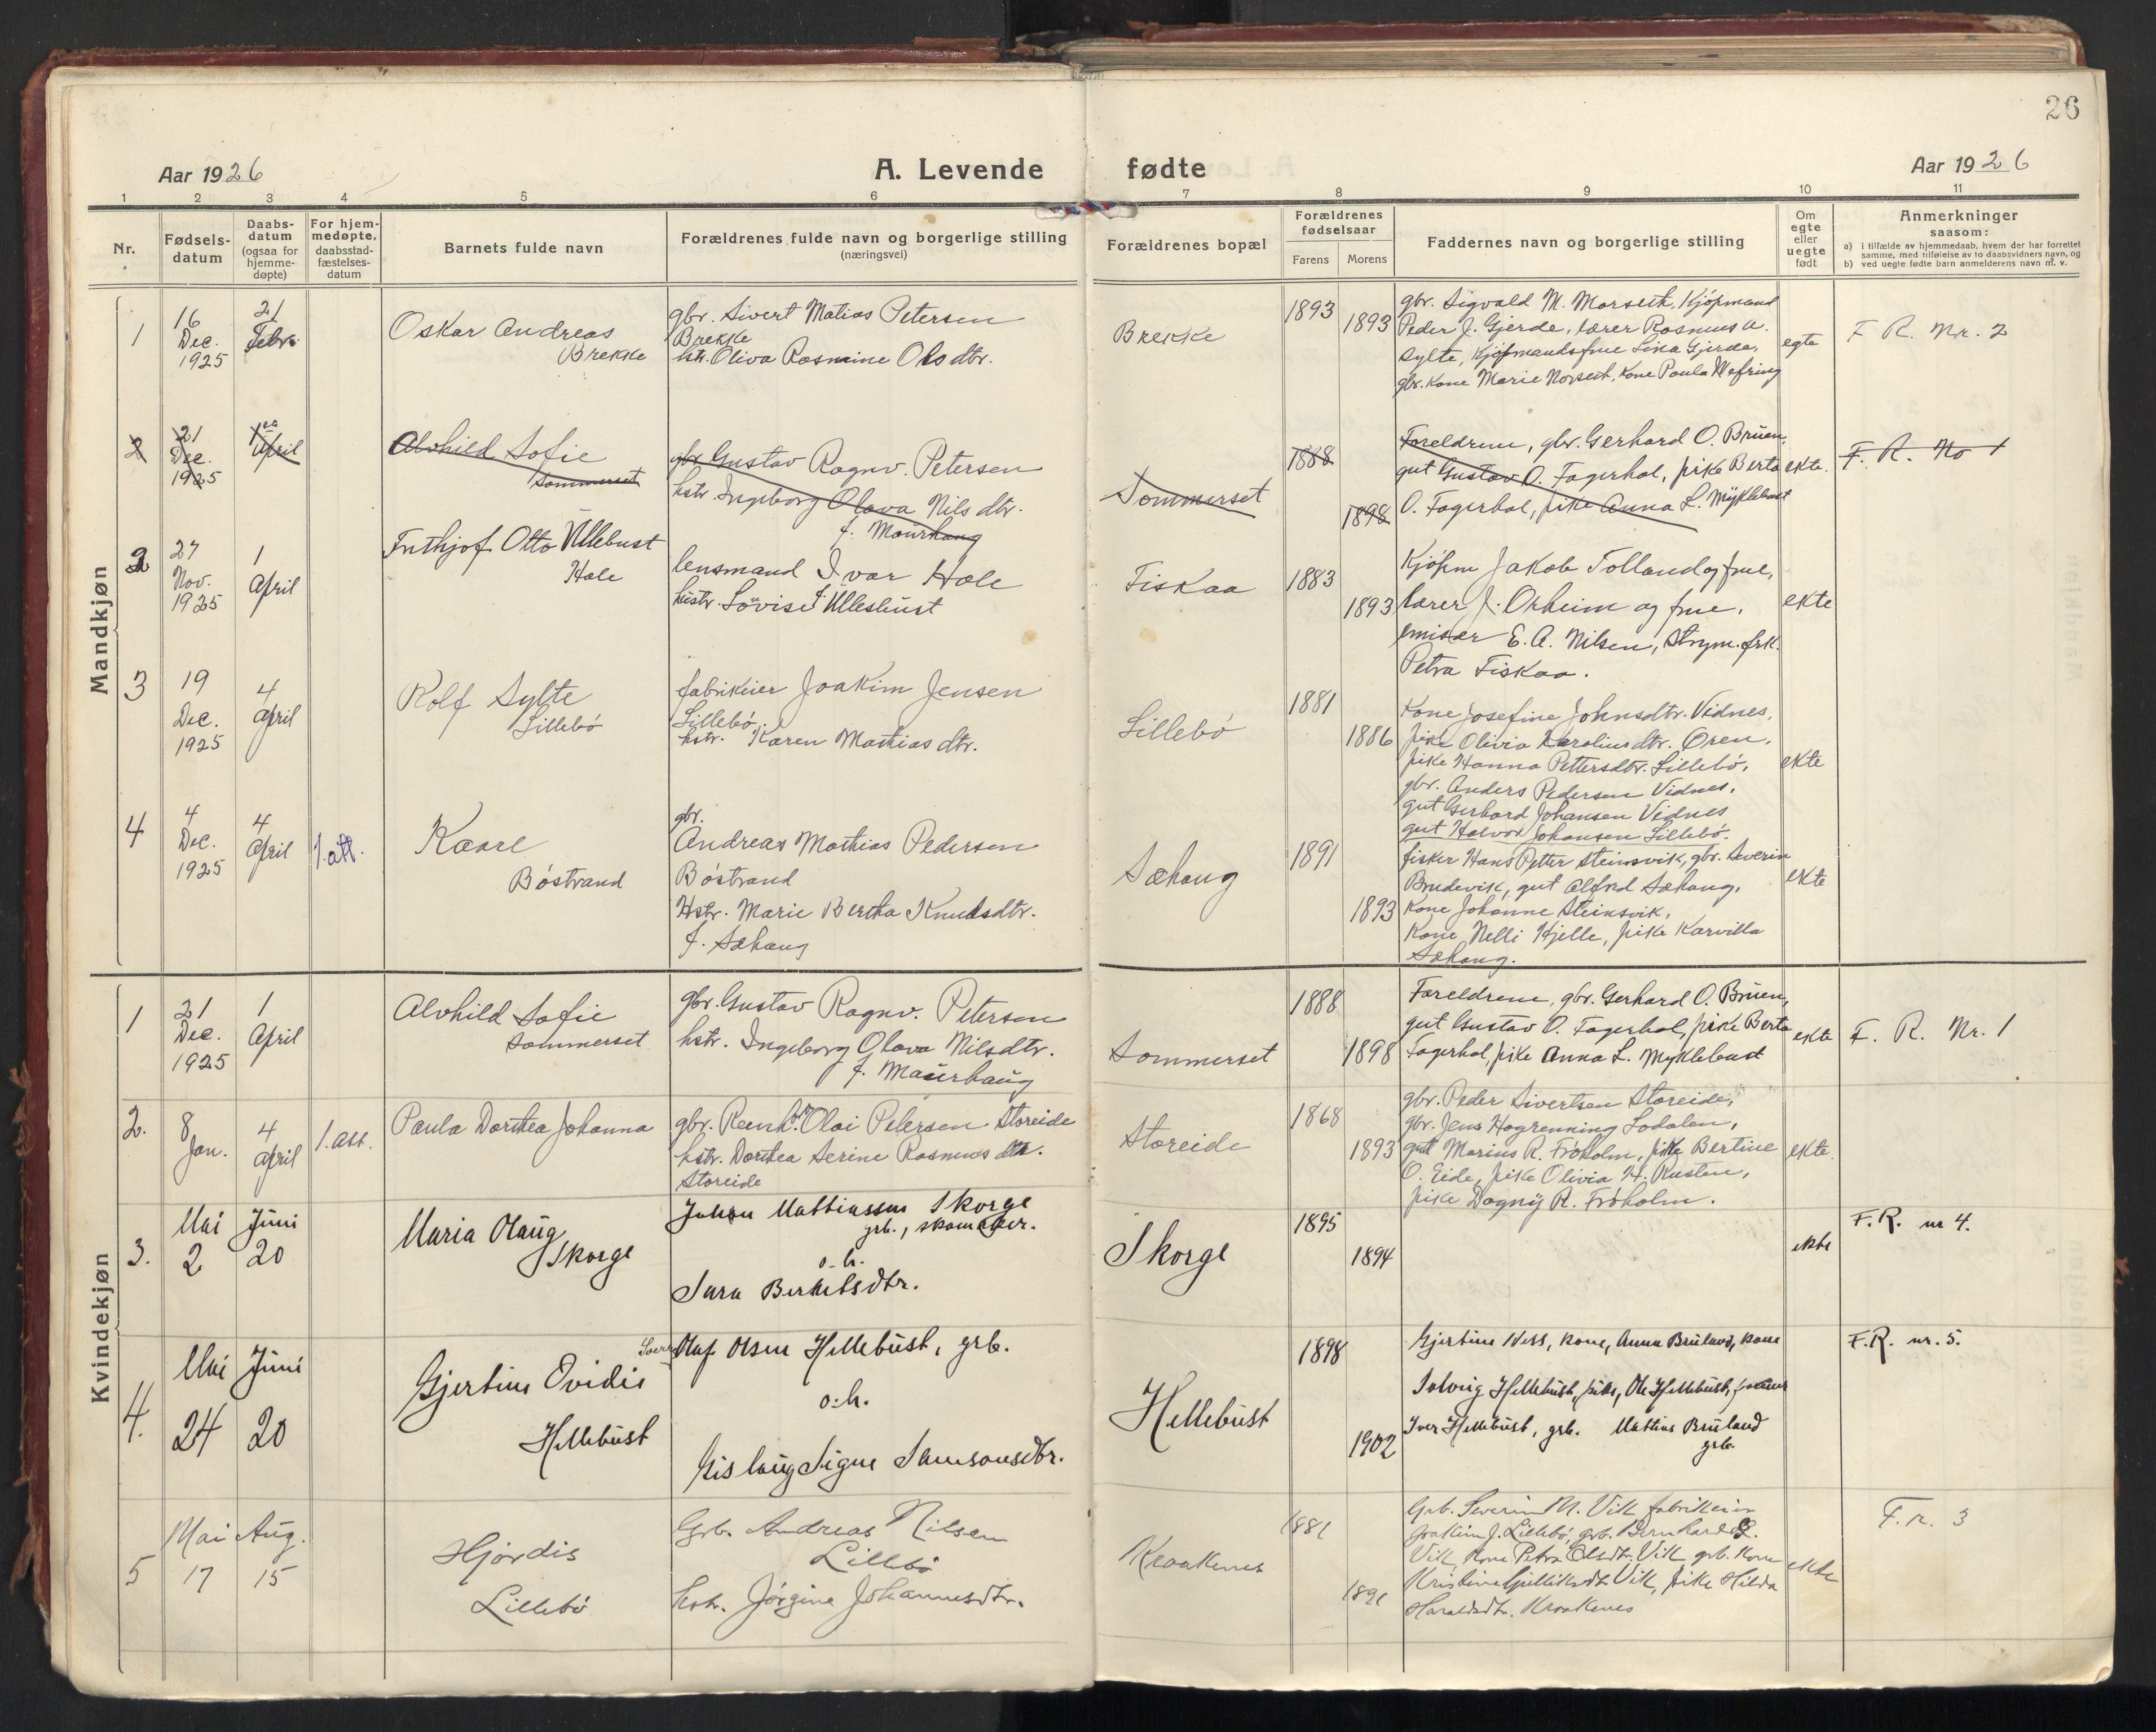 26
Aar 1926
A. Levende fødte
Aar 1926
1 2 3 4 5 6 7 8 9 10 11
Nr.
Fødsels-
datum
Daabs-
datum
(ogsaa for
hjemme-
døpte)
For hjem-
medøpte,
daabsstad-
fæstelses-
datum
Barnets fulde navn
Forældrenes fulde navn og borgerlige stilling
(næringsvei)
Forældrenes bopæl
Forældrenes
fødselsaar
Farens Morens
Faddernes navn og borgerlige stilling
Om
egte
eller
uegte
født
Anmerkninger
saasom:
a) i tilfælde av hjemmedaab, hvem der har forrettet
samme, med tilføielse av to daabsvidners navn, og
b) ved uegte fødte barn anmelderens navn m. v.
Mandkjøn
1
16
Dec.
1925
21
Febr.
Oskar Andreas
Brekke
gbr. Sivert Matias Petersen
Brekke
hstr. Oliva Rasmine Ols dtr.
Brekke
1893
1893
gbr. Sigvald M. Morseth, Kjøpmand
Peder J. Gjerde, lærer Rasmus A.
Sylte, Kjøpmandsfrue Lina Gjerde,
gbr. Kone Marie Norseth, Kone Paula Wefring
egte
F. R. Nr. 2
2
21
Dec.
1925
1
April
Alvhild Sofie
Sommerset
gbr. Gustav Ragnv. Petersen
hstr. Ingeborg Olava Nils dtr.
f. Maurhaug
Sommerset
1888
1898
Foreldrene, gbr. Gerhard O. Bruen,
gut Gustav O. Fagerhol, pike Berta
O. Fagerhol, pike Anna L. Myklebust
ekte.
F. R. No 1
2
27
Nov.
1925
1
April
Frithjof Otto Ullebust
Hole
lensmand Ivar Hole
hustr. Lovise f. Ullebust
Fiskaa
1883
1893
Kjøpm Jakob Tolland og frue,
lærer J. Orheim og frue,
emisær E. A. Nilsen, Stryn. frk.
Petra Fiskaa.
ekte
3
19
Dec.
1925
4
April
Rolf Sylte
Lillebø
fabrikeier Joakim Jensen
Lillebø.
hstr. Karen Mathias dtr.
Lillebø
1881
1886
Kone Josefine Johnsdtr. Vidnes,
pike Olivia Karolius dtr. Øren,
pike Hanna Pettersdtr. Lillebø,
gbr. Anders Pedersen Vidnes,
gut Gerhard Johansen Vidnes
gut Halvor Johansen Lillebø.
ekte
4
4
Dec.
1925
4
April
1. att.
Kaare
Bøstrand
gbr.
Andreas Mathias Pedersen
Bøstrand
Hstr. Marie Bertha Knudsdtr.
f. Sæhaug
Sæhaug
1891
1893
fisker Hans Petter Steinsvik, gbr. Severin
Brudevik, gut Alfred Sæhaug,
Kone Johanne Steinsvik,
Kone Nelli Hjelle, pike Karvilla
Sæhaug.
ekte
Kvindekjøn
1
21
Dec.
1925
1
April
Alvhild Sofie
Sommerset
gbr. Gustav Ragnv. Petersen
hstr. Ingeborg Olava Nilsdtr.
f. Maurhaug
Sommerset
1888
1898
Foreldrene, gbr. Gerhard O. Bruen,
gut Gustav O. Fagerhol, pike Berta
Fagerhol, pike Anna L. Myklebust
ekte
F. R. Nr. 1
2.
8
Jan.
4
April
1. att.
Paula Dorthea Johanna
gbr. Reinh. Olai Petersen Storeide
hstr. Dorthea Serine Rasmus dtr.
Storeide
Storeide
1868
1893
gbr. Peder Sivertsen Storeide,
gbr. Jens Hogrenning Lodalen,
gut Marius R. Frøholm, pike Bertine
O. Eide, pike Olivia H. Rusten,
pike Dagny R. Frøholm.
ekte
3.
Mai
2
Juni
20
Maria Olaug
Skorge
Johan Mattiassen Skorge
grb., skomaker.
o. h.
Sara Bertelsdtr.
Skorge
1895
1894
ekte
F.R. nr 4.
4.
Mai
24
Juni
20
Gjertine Ovidie
Hellebust
Olaf Olsen Hellebust, grb.
o.h.
Gislaug Signe Samsonsdtr.
Hellebust
1898
1902
Gjertine Hess, kone, Anna Bruland, kone
Solveig Hellebust, pike, Ole Hellebust,
Iver Hellebust, grb. Mattias Bruland
grb.
F.R. nr. 5.
5
Mai
17
Aug.
15
Hjørdis
Lillebø
Grb. Andreas Nilsen
Lillebø
hstr. Jørgine Johannesdtr.
Kraakenes
1881
1891
Grb. Severin M. Vik fabrikeier
Joakim J. Lillebø, grb. Bernhard
Vik, Kone Petra Olsdtr. Vik grb. Kone
Kristine Vik, pike Hilda
Haraldsdtr. Kraakenes
ekte
F. r. 3